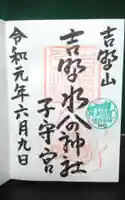 吉野山
吉野水分神社
子守宮
令和元年六月九日